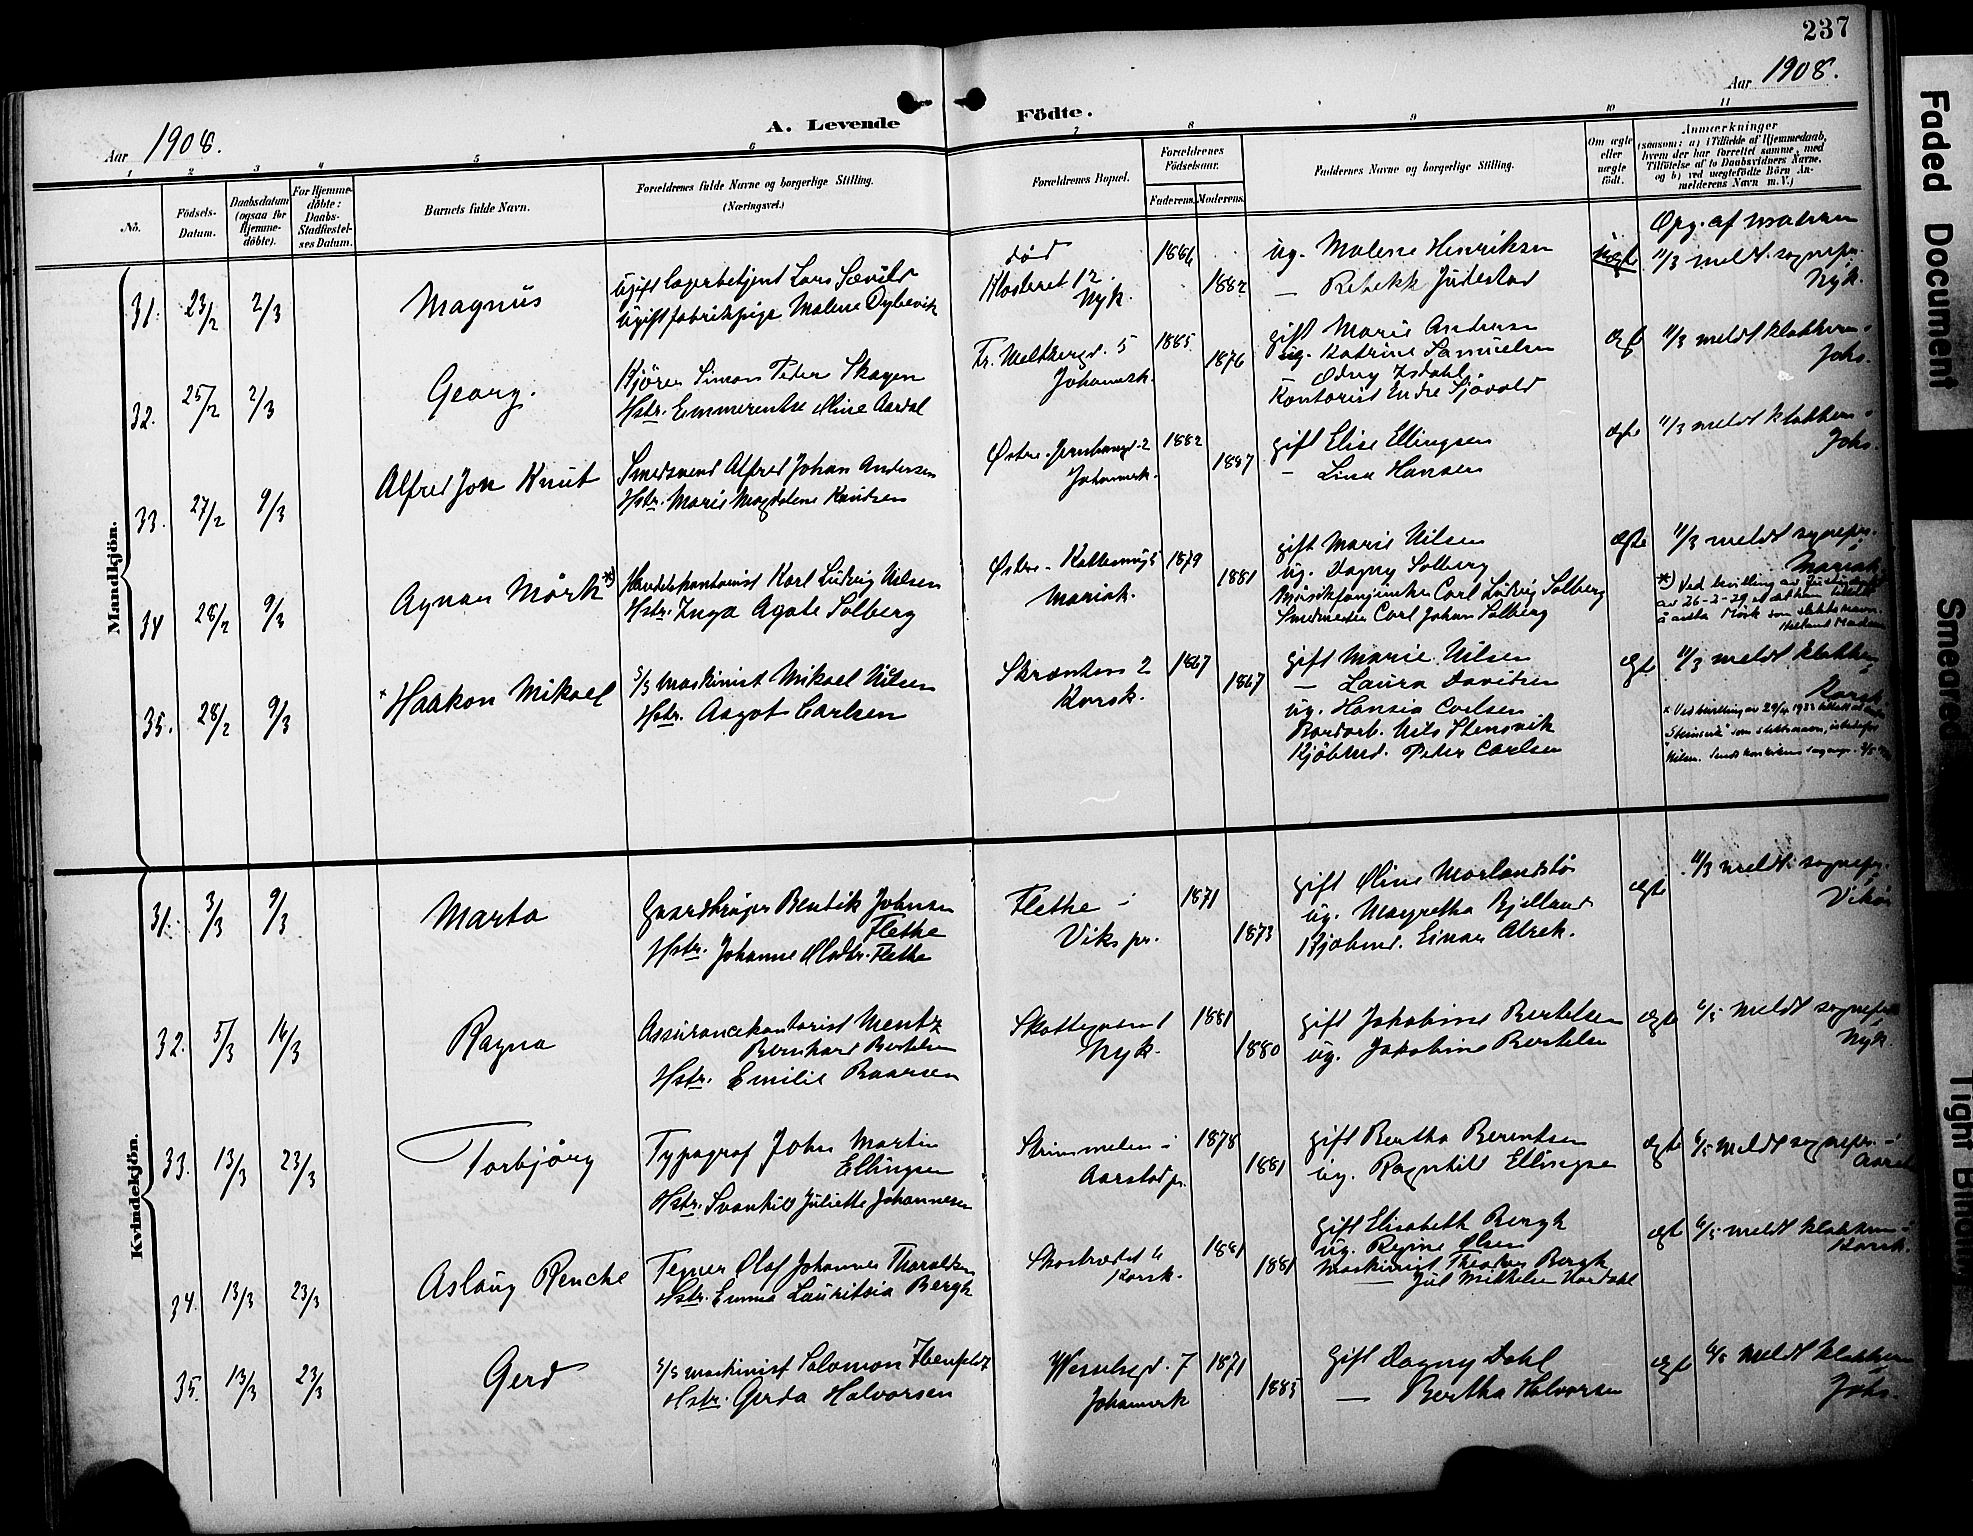 237
Aar 1908.
Aar 1908.
A. Levende Födte.
1 2 3 4 5 6 7 8 9 10 11
No.
Födsels-Datum.
Daabsdatum (ogsaa for Hjemme-döbte).
For Hjemme-döbte: Daabs-Stadfæstel-ses Datum.
Barnets fulde Navn.
Forældrenes fulde Navne og borgerlige Stilling.
(Næringsvei.)
Forældrenes Bopæl.
Forældrenes Födselsaar.
Faderens. Moderens.
Faddernes Navne og borgerlige Stilling.
Om ægte eller uægte födt.
Anmærkninger
(saasom: a) i Tilfælde af Hjemmedaab,
hvem der har forrettet samme, med
Tilföielse af to Daabsvidners Navne.
og b) ved uægtefödte Börn An-
melderens Navn m. V.)
Mandkjön.
31. 23/2 2/3 Magnus
Ugift lagerbetjent Lars Sævild
Ugift fabrikpige Malene Dybevik
död
Klosteret 12
Nyk.
1886
1882
ug. Malene Henriksen
— Rebekk Judestad
Uægte
Opg. af moderen
11/3 meldt sognepr.
Nyk.
32. 25/2 2/3 Georg.
Kjörer Simon Peder Skagen
Hstr. Emmerentse Oline Aardal
Fr. Meltzergd. 5
Johannesk.
1885
1876
gift Marie Andersen
ug. Katrine Samuelsen
— Odny Isdahl
Kontorist Endre Sjövold
ægte
11/3 meldt klokkeren i
Johs.
33. 27/2 9/3 Alfred Jon Knut
Smedsvend Alfred Johan Andersen
Hstr. Marie Magdalene Knudsen
Östre Jernbanegd 2
Johannesk.
1882
1887
gift Elise Ellingsen
— Lina Hansen
ægte
11/3 meldt klokkeren i
Johs.
34 28/2 9/3 Agnar Mörk *)
Handelskontorist Karl Ludvig Nilsen
Hstr. Inga Agate Solberg
Mariak.
1879
1881
gift Marie Nilsen
ug. Dagny Solberg
Musikfanejunker Carl Ludvig Solberg
Smedmester Carl Johan Solberg
ægte
11/3 meldt sognepr. i
Mariak.
*) Ved bevilling av
av 26-2-29
å anta Mörk som slektsnavn.
35. 28/2 9/3 * Haakon Mikael
S/S maskinist Mikael Nilsen
Hstr. Aagot Carlsen
Skrænten 2
Korsk.
1867
1867
gift Marie Nilsen
— Laura Davidsen
ug. Hansia Carlsen
Nils Stensvik
Kjöbmd. Peter Carlsen
ægte
11/3 meldt klokkeren i
Korsk.
* Ved bevilling av 29/4 1933
"Steinsvik" som slektsnavn, istedenfor
Nilsen.
Kvindekjön.
31. 3/3 9/3 Marta
Gaardbruger Bendik Johnsen
Flethe
Hstr. Johanne Olsdtr. Flethe
Flethe i
Viks pr.
1871
1873
gift Oline Morlandstö
ug. Magretha Kjelland
Kjöbmd. Einar Alrek.
ægte
11/3 meldt sognepr. i
Vikör
32. 5/3 16/3 Ragna
Assurancekontorist Mentz
Bernhard Bertelsen
Hstr. Emilie Baarsen
Nyk.
1881
1880
gift Jakobine Bertelsen
ug. Jakobine Bertelsen
ægte
6/5 meldt sognepr. i
Nyk.
33. 13/3 23/3 Torbjörg
Typograf John Martin
Ellingsen
Hstr. Svanhild Juliette Johannesen
Strimmelen i
Aarstad pr.
1878
1881
gift Bertha Berentsen
ug. Ragnhild Ellingsen
ægte
6/5 meldt sognepr. i
Aarstad
34. 13/3 23/3 Aslaug Renche
Tegner Olaf Johannes Thoraldsen
Hstr. Emma Lauritzia Bergh
Skostrædet 6
Korsk.
1881
1881
gift Elisabeth Bergh
ug. Regine Olsen
Maskinist Theodor Bergh
— Jul Mikkelsen Hordahl
ægt
6/5 meldt klokkeren i
Korsk.
35. 13/3 23/3 Gerd
S/S maskinist Salomon Ibenfeldt
Hstr. Gerda Halvorsen
Wesselsgd. 7
Johannesk
1871
1885
Gift Dagny Dahl
— Bertha Halvorsen
ægt
6/5 meldt klokkeren i
Johs.
Faded Document
Smeared
Tight Binding